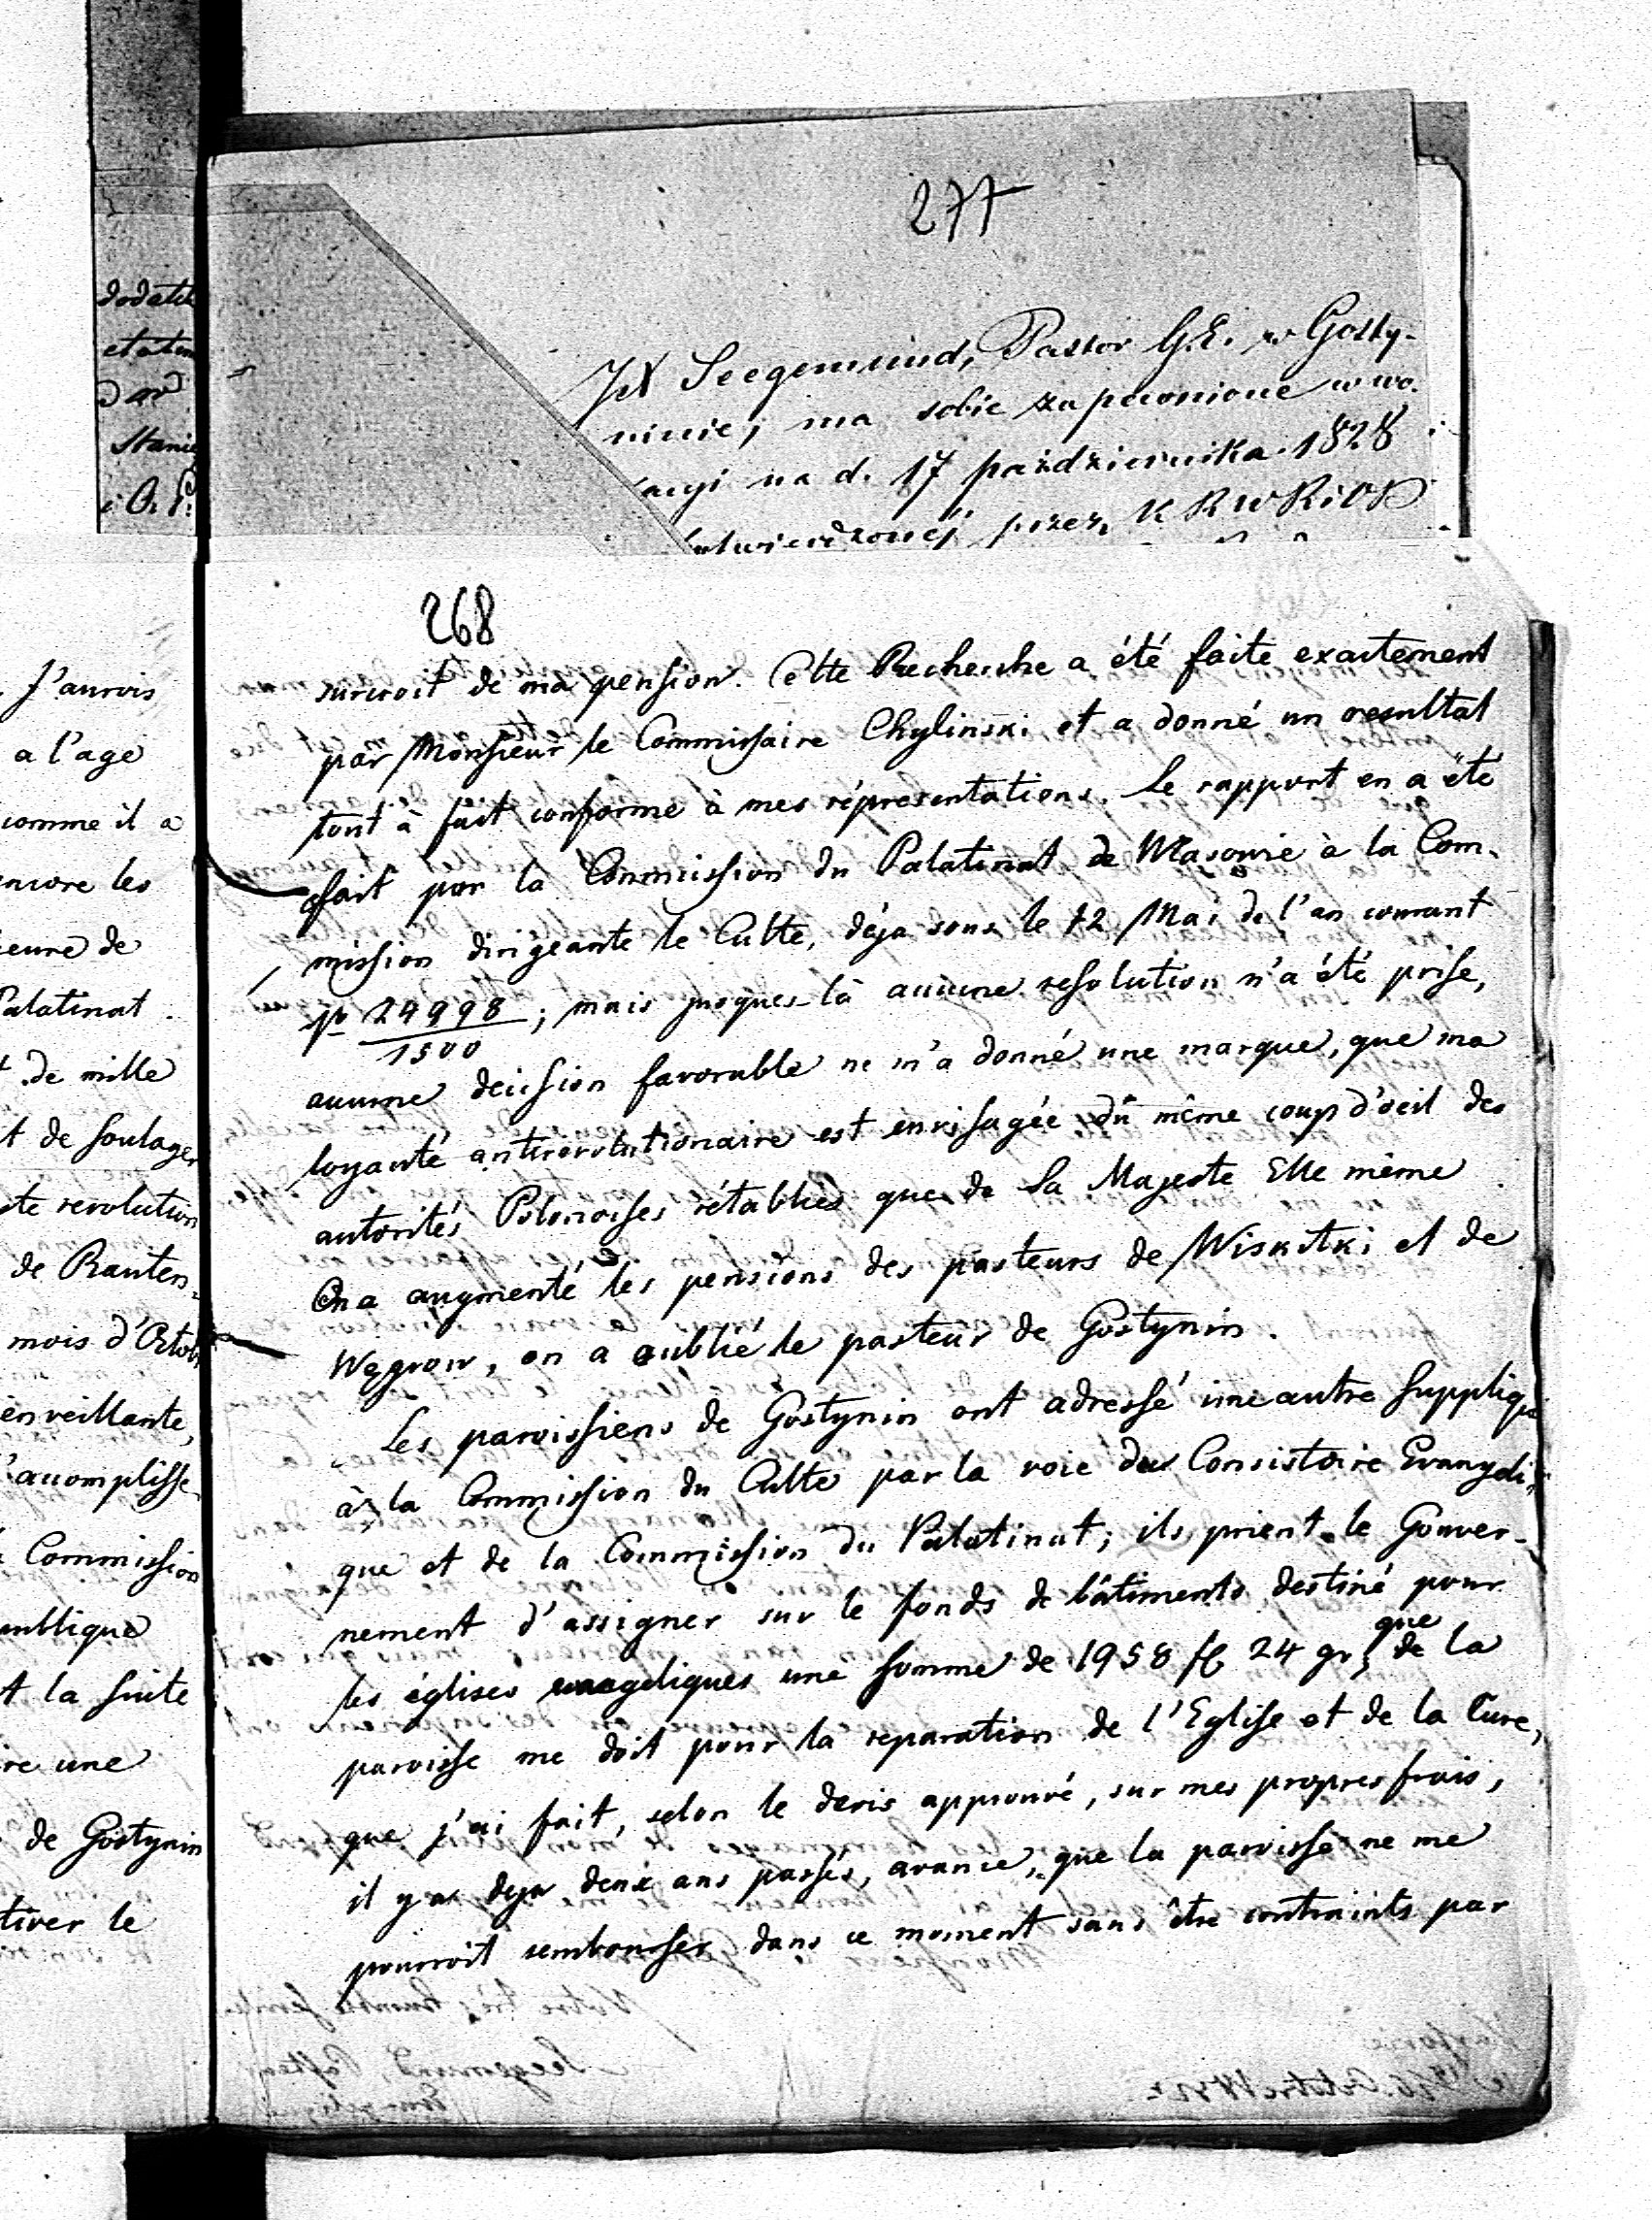 dodatk
etatu
dar
Stanis
i O. P.
277
JX Seegemund, Pastor G.E. w Gosty-
ninie, ma sobie zapewnione w wo-
acyi na d. 17 października 1828
potwierdzonej przez K R W R i O P
. J'aurois
a l'age
comme il a
encore les
ieure de
Palatinat.
t de mille
t de soulager
te revolution
de Rauten-
mois d'Octob
enveillante,
'accomplisse-
Commission
ublique
t la suite
re une
de Gostynin
tiver le
268
surcroit de ma pension. Cette Recherche a été faite exactement
par Monsieur le Commissaire Chylinski et a donné un resultat
tout à fait conforme à mes répresentations. Le rapport en a été
fait par la Commission du Palatinat de Masovie à la Com-
mission dirigeante le Culte, déja sous le 12 Mai de l'an courant
24998/1500; mais jusques là aucune resolution n'a été prise,
aucune decision favorable ne m'a donné une marque, que ma
loyauté antirevolutionaire est envisagée du même coup d'oeil des
autorités Polonoises rétablies que de Sa Majeste Elle même
On a augmenté les pensions des pasteurs de Wiskitki et de
Węgrow, on a oublié le pasteur de Gostynin.
Les paroissiens de Gostynin ont adressé une autre supplique
à la Commission du Culte par la voie du Consistoire Evangeli-
que et de la Commission du Palatinat; ils prient le Gouver-
nement d'assigner sur le fonds de bâtiments destiné pour
les églises evangeliques une somme de 1958 fl 24 gr que de la
paroisse me doit pour la reparation de l'Eglise et de la Cure,
que j'ai fait, selon le devis approuvé, sur mes propres frais,
il y a deja deux ans passés, avance, que la paroisse ne me
pourroit rembourser dans ce moment sans être contraints par